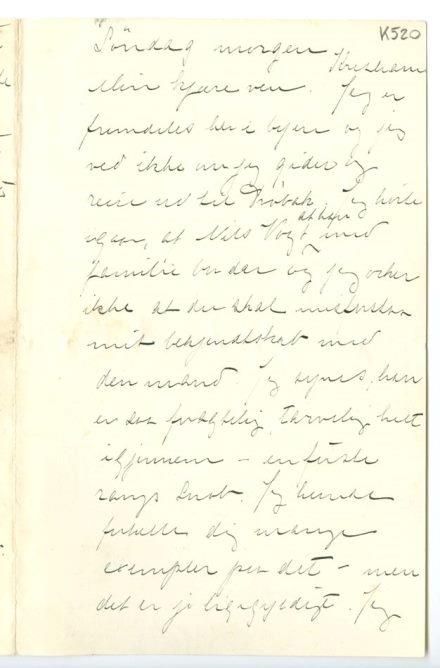 K520
Søndag morgen
Kristiania
Min kjære ven. Jeg er
fremdeles her i byen og jeg
ved ikke om jeg gider
reise ud til Drøbak. Jeg hørte
igaar, at Nils Vogt med
familie bor der og jeg
ikke at du skal
mit bekjendtskab med
den mand. Jeg synes, han
er saa tarvelig helt
igjennem – en første
rangs Snob. Jeg kunde
fortælle dig mange
exempler paa det – men
det er jo ligegyldigt. Jeg